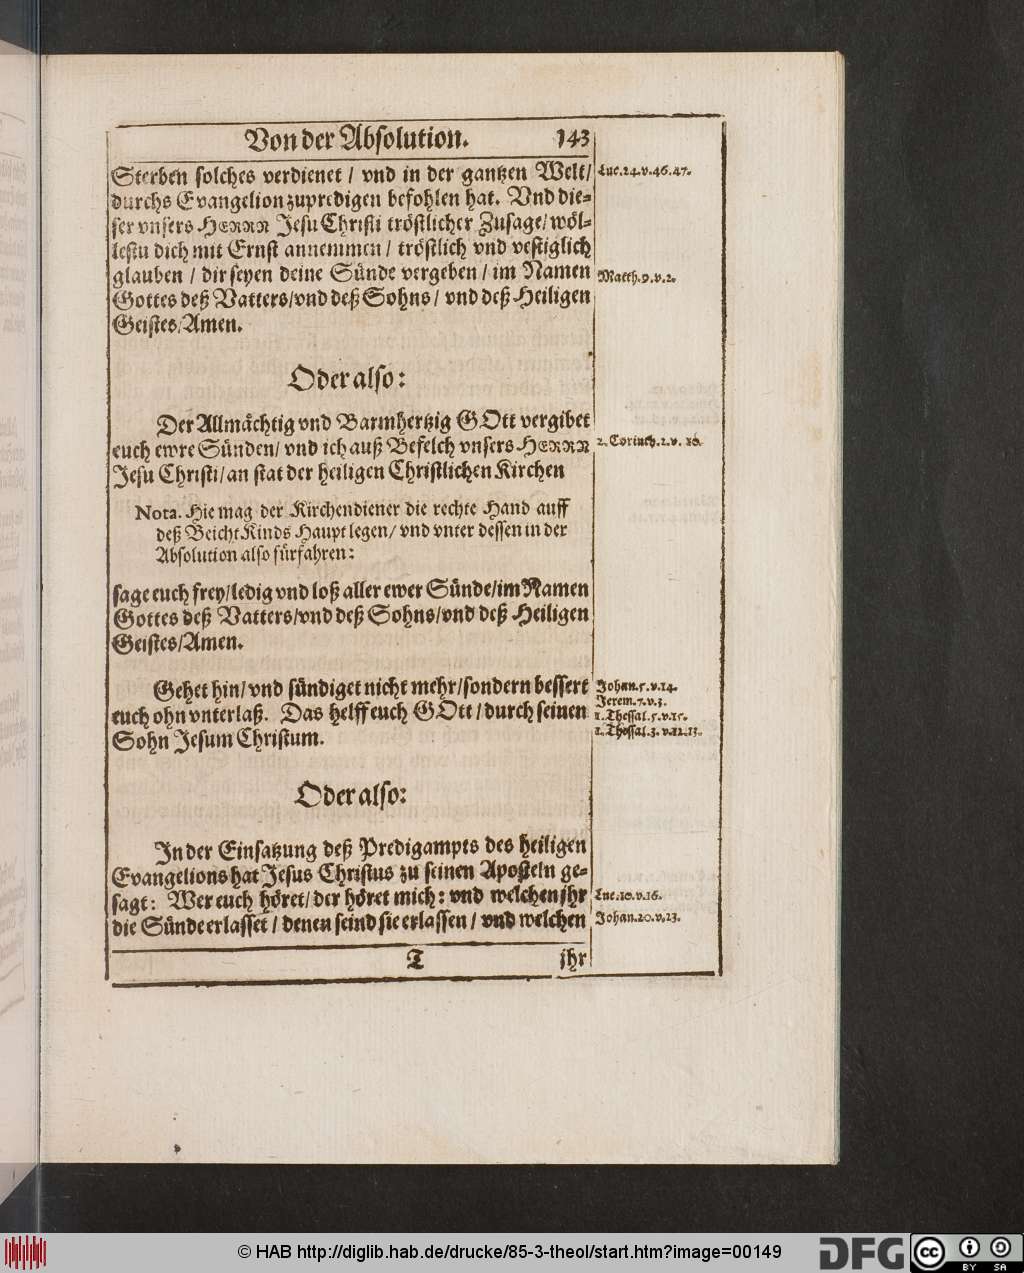 Von der Absolution. 143
Sterben solches verdienet / vnd in der gantzen Welt /
durchs Evangelion zupredigen befohlen hat. Vnd die⸗
ser vnsers HERRN Jesu Christi tröstlicher Zusage / wöl⸗
lestu dich mit Ernst annemmen / tröstlich vnd vestiglich
glauben / dir seyen deine Sünde vergeben / im Namen
Gottes deß Vatters / vnd deß Sohns / vnd deß Heiligen
Geistes / Amen.
Luc. 24. v. 46. 47.
Matth. 9. v. 2.
Oder also:
Der Allmächtig vnd Barmhertzig GOtt vergibet
euch ewre Sünden / vnd ich auß Befelch vnsers HERRN
Jesu Christi / an stat der heiligen Christlichen Kirchen
2. Corinth. 2. v. 10.
Nota. Hie mag der Kirchendiener die rechte Hand auff
deß Beicht Kinds Haupt legen / vnd vnter dessen in der
Absolution also fürfahren:
sage euch frey / ledig vnd loß aller ewer Sünde / im Namen
Gottes deß Vatters / vnd deß Sohns / vnd deß Heiligen
Geistes / Amen.
Gehet hin / vnd sündiget nicht mehr / sondern bessert
euch ohn vnterlaß. Das helff euch GOtt / durch seinen
Sohn Jesum Christum.
Johan. 5. v. 14.
Jerem. 7. v. 3.
1. Thessal. 5. v. 15.
1. Thessal. 3. v. 12. 13.
Oder also:
In der Einsatzung deß Predigampts des heiligen
Evangelions hat Jesus Christus zu seinen Aposteln ge⸗
sagt: Wer euch höret / der höret mich: vnd welchen jhr
die Sünde erlasset / denen seind sie erlassen / vnd welchen
Luc. 10. v. 16.
Johan. 20. v. 23.
T jhr
© HAB http://diglib.hab.de/drucke/85-3-theol/start.htm?image=00149
DFG
cc BY SA